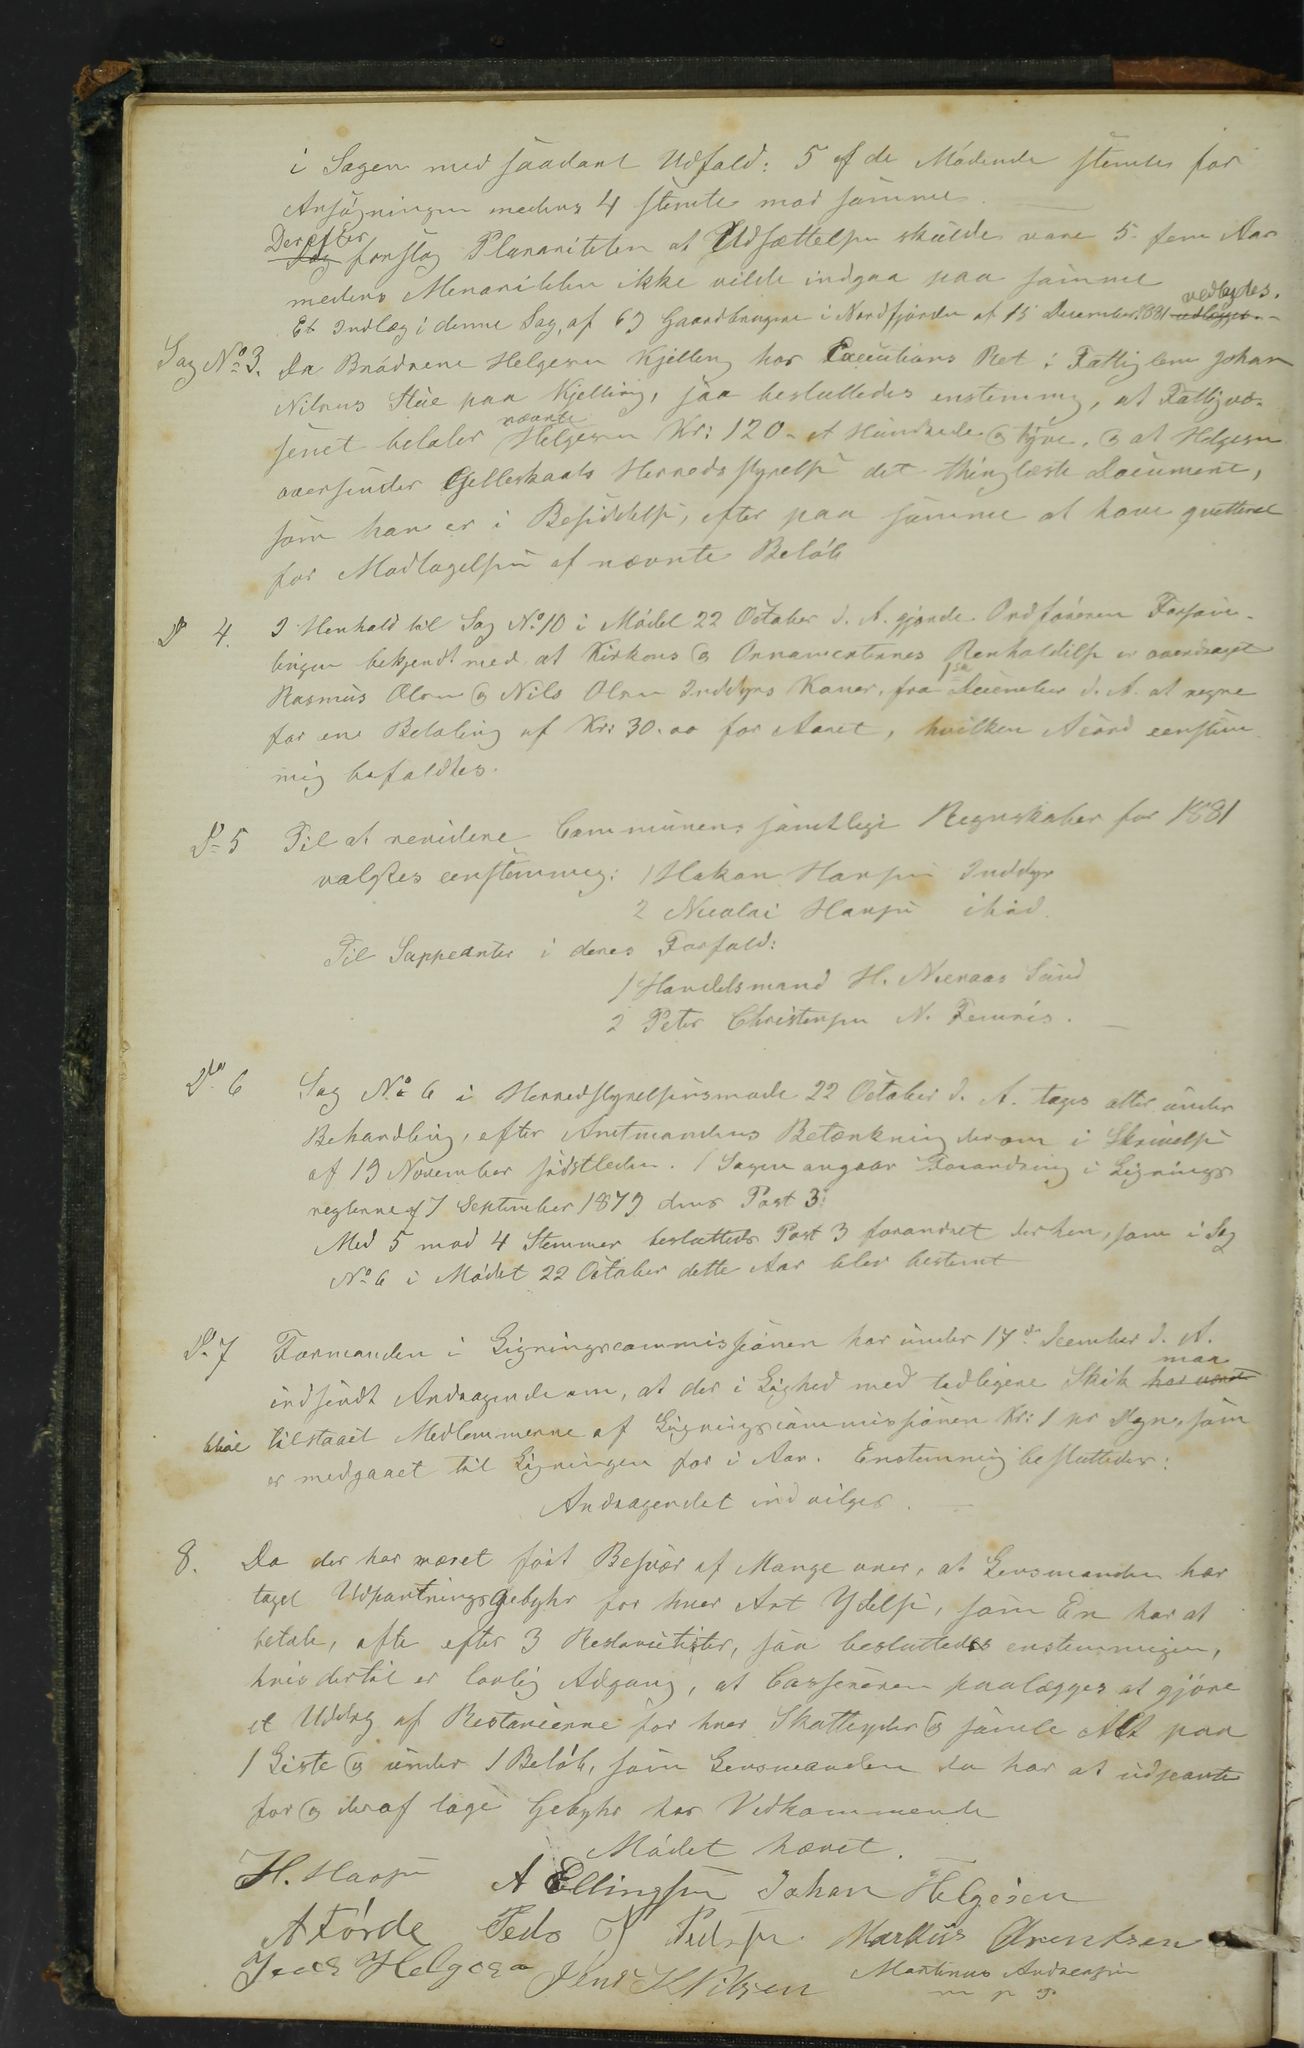 i Sagen med saadant Udfald: 5 af de Mødende stemte for
Ansøgningen medens 4 stemte mod samme.
Derefter
Jeg forslog Pluraniteten at Udsættelsen skulde vare 5 fem Aar
medens Menoriteten ikke vilde indgaa paa samme
vedlagdes.
Et Indlæg i denne Sag, af 69 Gaardbrugere i Nordfjorden af 15 December 1881 udlægges.
Sag No 3. Da Brødrene Helgesen Kjelling har Executions Ret i Fattiglem Johan
Nilsens Stue paa Kjelling, saa besluttedes enstemmig, at Fattigvæ-
nævnte
senet betaler Helgesen Kr: 120 - et Hundrede & tyve, & at Helgesen
oversender Gilleskaals Herredsstyrelse det thinglæste Document,
som han er i Besiddelse, efter paa samme at have qvitteret
for Modtagelsen af nævnte Beløb
Do 4. I Henhold til Sag No 10 i Mødet 22 October d. A. gjorde Ordføreren Forsam-
lingen bekjendt med at Kirkens & Ornamenternes Renholdelse er overdraget
1ste
Rasmus Olsen & Nils Olsen Inddyrs Koner, fra December d. A. at regne
for en Betaling af Kr: 30.00 for Aaret, hvilken Acord eenstem
mig bifaldtes.
Do 5 Til at revidere Communens samtlige Regnskaber for 1881
valgtes eenstemmig: 1 Hakon Hansen Inddyr
2 Nicolai Hansen ibid.
Til Suppeanter i deres Forfald:
1 Handelsmand H. Nicraas Sund
2 Peter Christensen N. Femris.
Do 6 Sag No 6 i Herredstyrelsensmøde 22 October d. A. tages atter under
Behandling, efter Amtmandens Betænkning derom i Skrivelse
af 19 November sidstleden. / Sagen angaar Forandring i Lignings
reglerne af 7 September 1879 dens Post 3:
Med 5 mod 4 Stemmer besluttedes Post 3 forandret derhen, som i Sag
No 6 i Mødet 22 October dette Aar blev bestemt
Do 7 Formanden i Ligningscommissionen har under 17de December d. A.
maa
indsendt Andragende om, at der i Lighed med tidligere Skik har været
blive tilstaaet Medlemmerne af Ligningscommissionen Kr: 1 pr Døgn, som
er medgaaet til Ligningen for i Aar. Enstemmig besluttedes:
Andragendet indvilges.
8. Da der har været ført Besvær af Mange over, at Lensmanden har
taget Udpantningsgebyhr for hver Art Ydelse, som En har at
betale, ofte efter 3 Restancelister, saa besluttedes enstemmigen,
hvis dertil er lovlig Adgang, at Cassereren paalægges at gjøre
et Uddrag af Restancerne for hver Skatteyder & samle Alt paa
1 Liste & under 1 Beløb, som Lensmanden da har at udpante
for & deraf tage Gebyhr hos Vedkommende
Mødet hævet.
H. Hansen A Ellingsen Johan Helgesen
A Førde Peder J Pedersen Markus Arentsen
Jens Helgesen Jens K Nilsen Martinus Andreassen
m p P